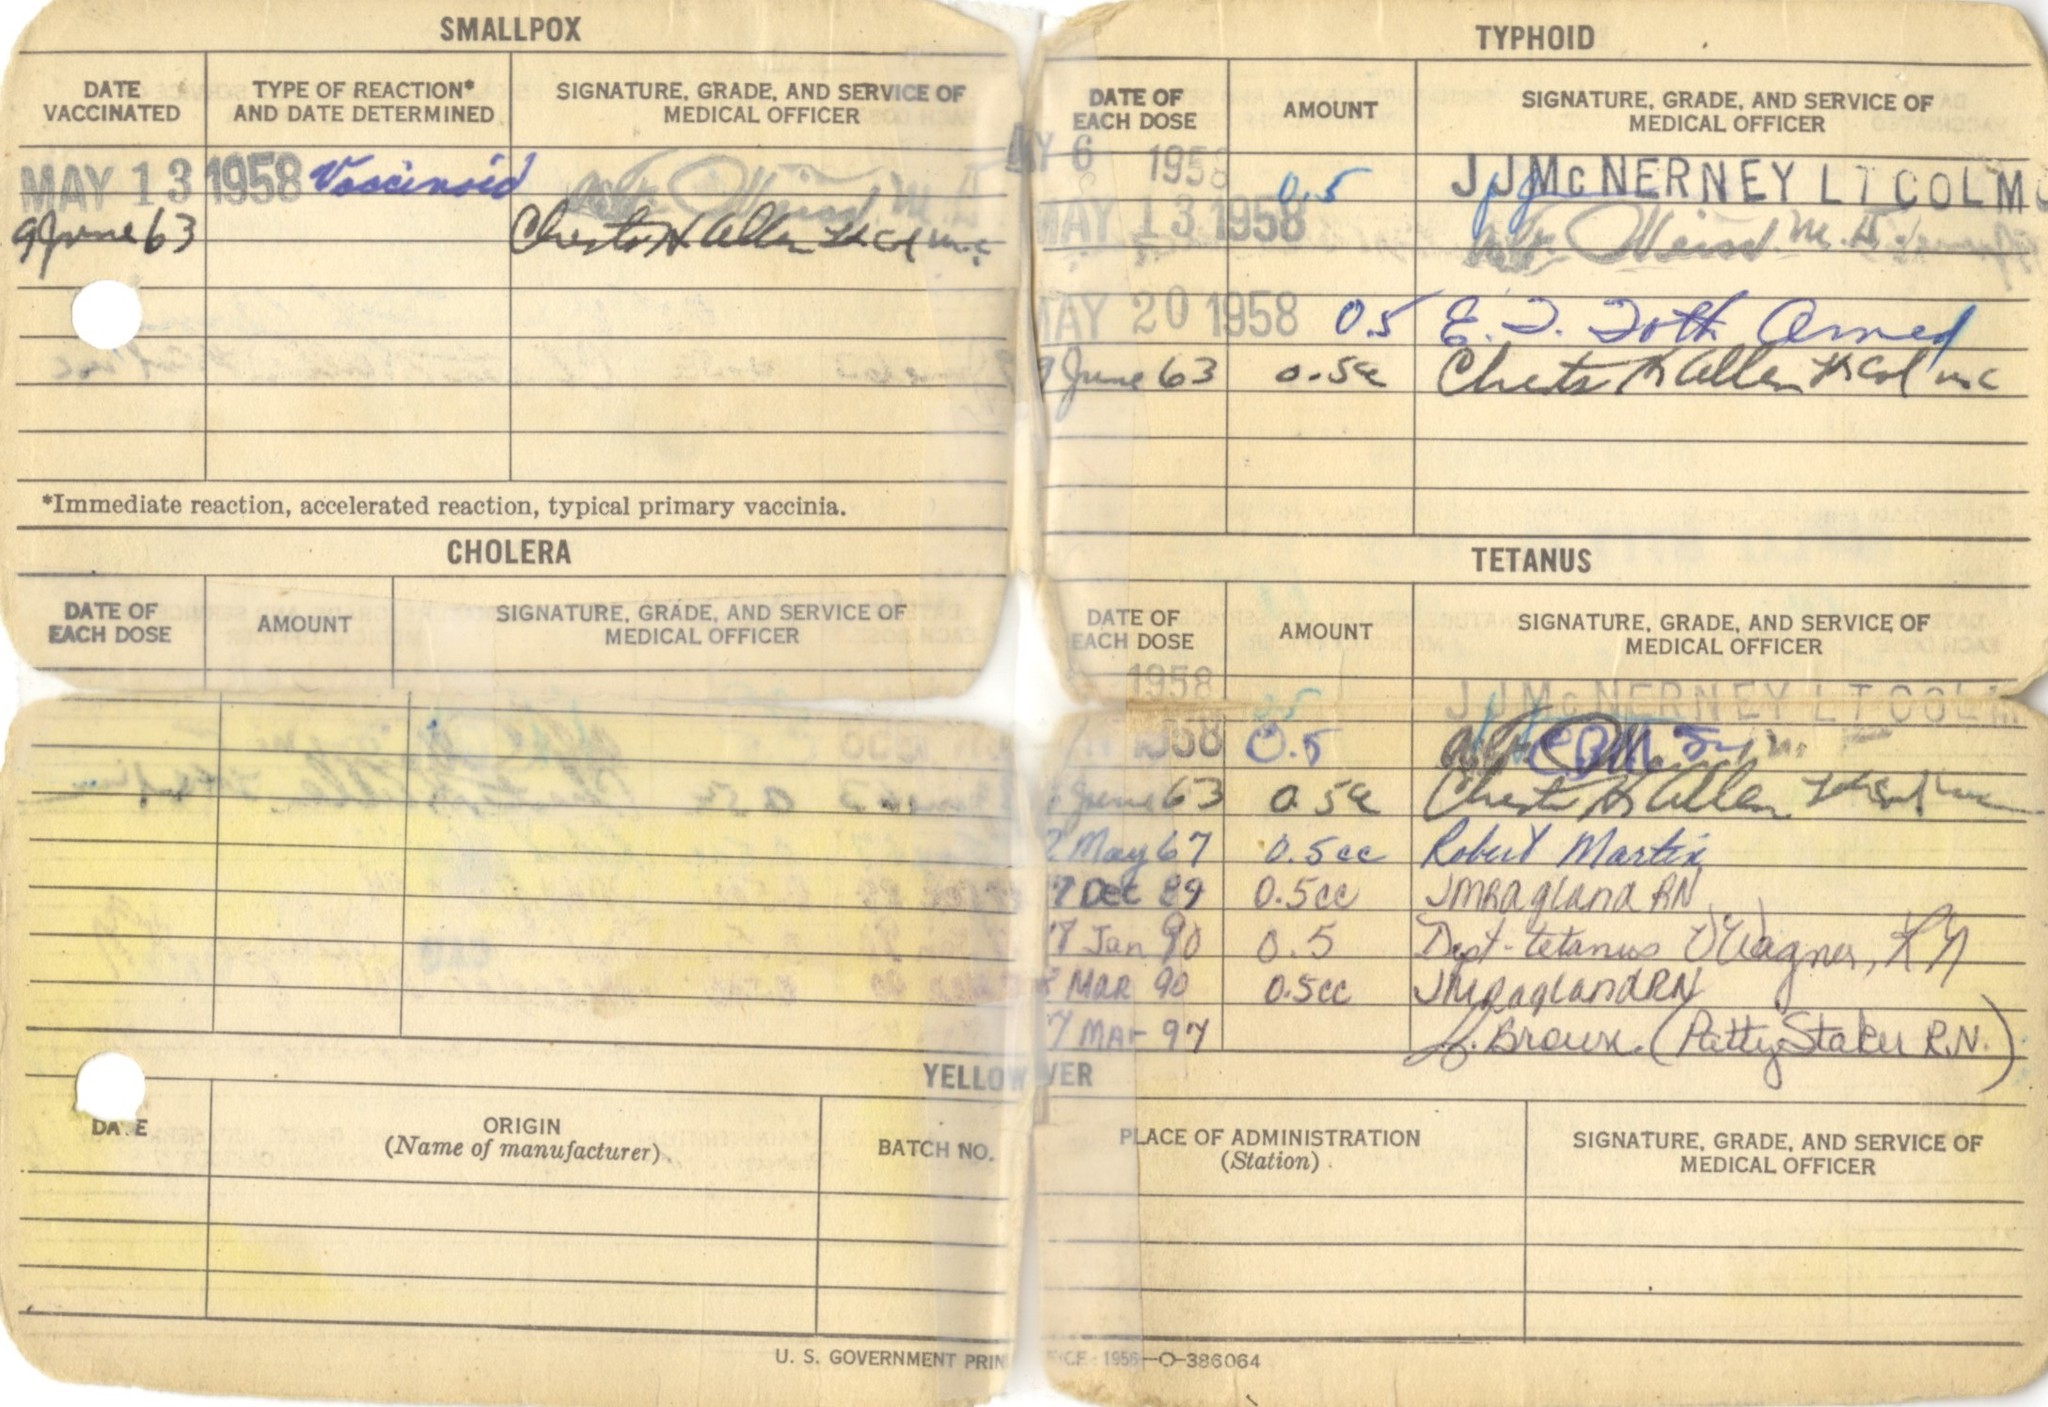 SMALLPOX
DATE VACCINATED
TYPE OF REACTION* AND DATE DETERMINED
SIGNATURE, GRADE, AND SERVICE OF MEDICAL OFFICER
MAY 13 1958 Vaccinoid M.D.
9 June 63 Chester H Allen Lt Col mc
*Immediate reaction, accelerated reaction, typical primary vaccinia.
CHOLERA
DATE OF EACH DOSE
AMOUNT
SIGNATURE, GRADE, AND SERVICE OF MEDICAL OFFICER
TYPHOID
DATE OF EACH DOSE
AMOUNT
SIGNATURE, GRADE, AND SERVICE OF MEDICAL OFFICER
AY 6 1958 0.5 J J McNERNEY LT COL MC
MAY 13 1958 M.D.
MAY 20 1958 0.5 E. T. Toth
9 June 63 0.5cc Chester H Allen Lt Col mc
TETANUS
DATE OF EACH DOSE
AMOUNT
SIGNATURE, GRADE, AND SERVICE OF MEDICAL OFFICER
1958 0.5 J J McNERNEY LT COL M
1958 0.5
June 63 0.5cc Chester H Allen Lt Col mc
2 May 67 0.5cc Robert Martin
7 Dec 89 0.5cc JMRagland RN
Jan 90 0.5 Dipt-tetanus Wagner, RN
Mar 90 0.5cc JMRagland RN
7 Mar 97 L. Brown (Patty Staker R.N.)
YELLOW VER
DATE
ORIGIN (Name of manufacturer)
BATCH NO.
PLACE OF ADMINISTRATION (Station)
SIGNATURE, GRADE, AND SERVICE OF MEDICAL OFFICER
U. S. GOVERNMENT PRIN ICE : 1956—O-386064